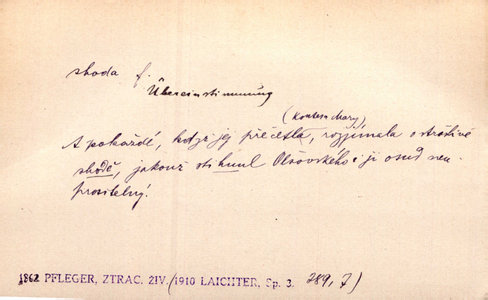 shoda f.
Übereinstimmung
(Kontesa Mary)
A pokaždé, když jej přečetla, rozjímala o strašlivé
shodě, jakouž stihnul Olšovského i ji osud neu-
prositelný.
1862 PFLEGER, ZTRAC. ŽIV. (1910 LAICHTER, Sp. 3. 289, 7)